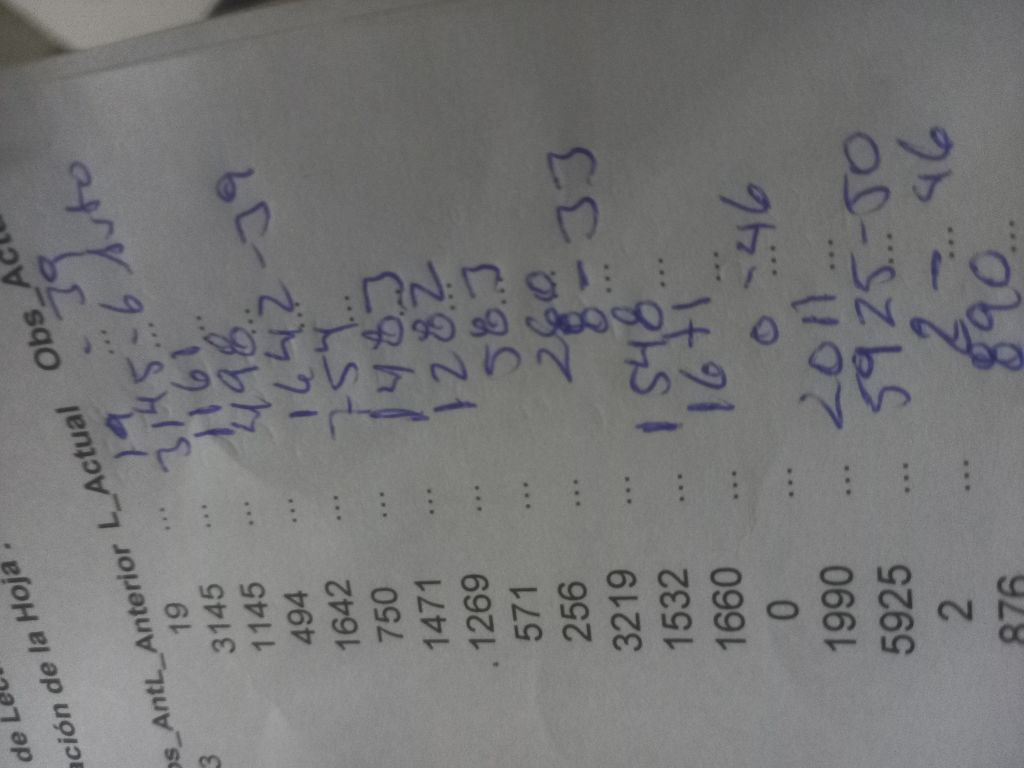 de Lec
ación de la Hoja .
os_AntL_Anterior L_Actual Obs_Actu
3 19 ... 19 - 39
3145 ... 3145 - 6
1145 ... 1161 ...
494 ... 498 ...
1642 ... 1642 - 39
750 ... 754 ...
1471 ... 1483 ...
.1269 ... 1282 ...
571 ... 583 ...
256 ... 260 ...
3219 ... 8 - 33
1532 ... 1548 ...
1660 ... 1671 ...
0 ... 0 - 46
1990 ... 2011 ...
5925 ... 5925 - 50
2 ... 2 - 46
876 890 ...